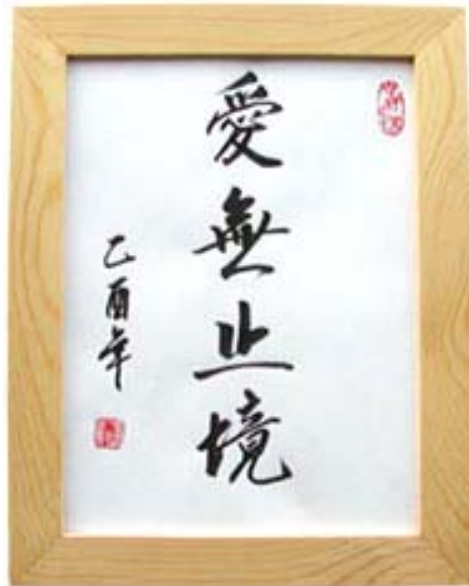 愛無止境
乙酉年